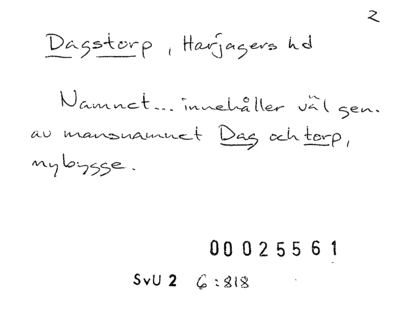 2
Dagstorp, Harjagers hd
Namnet... innehåller väl gen.
av mansnamnet Dag och torp,
nybygge.
00025561
SvU 2 6:818